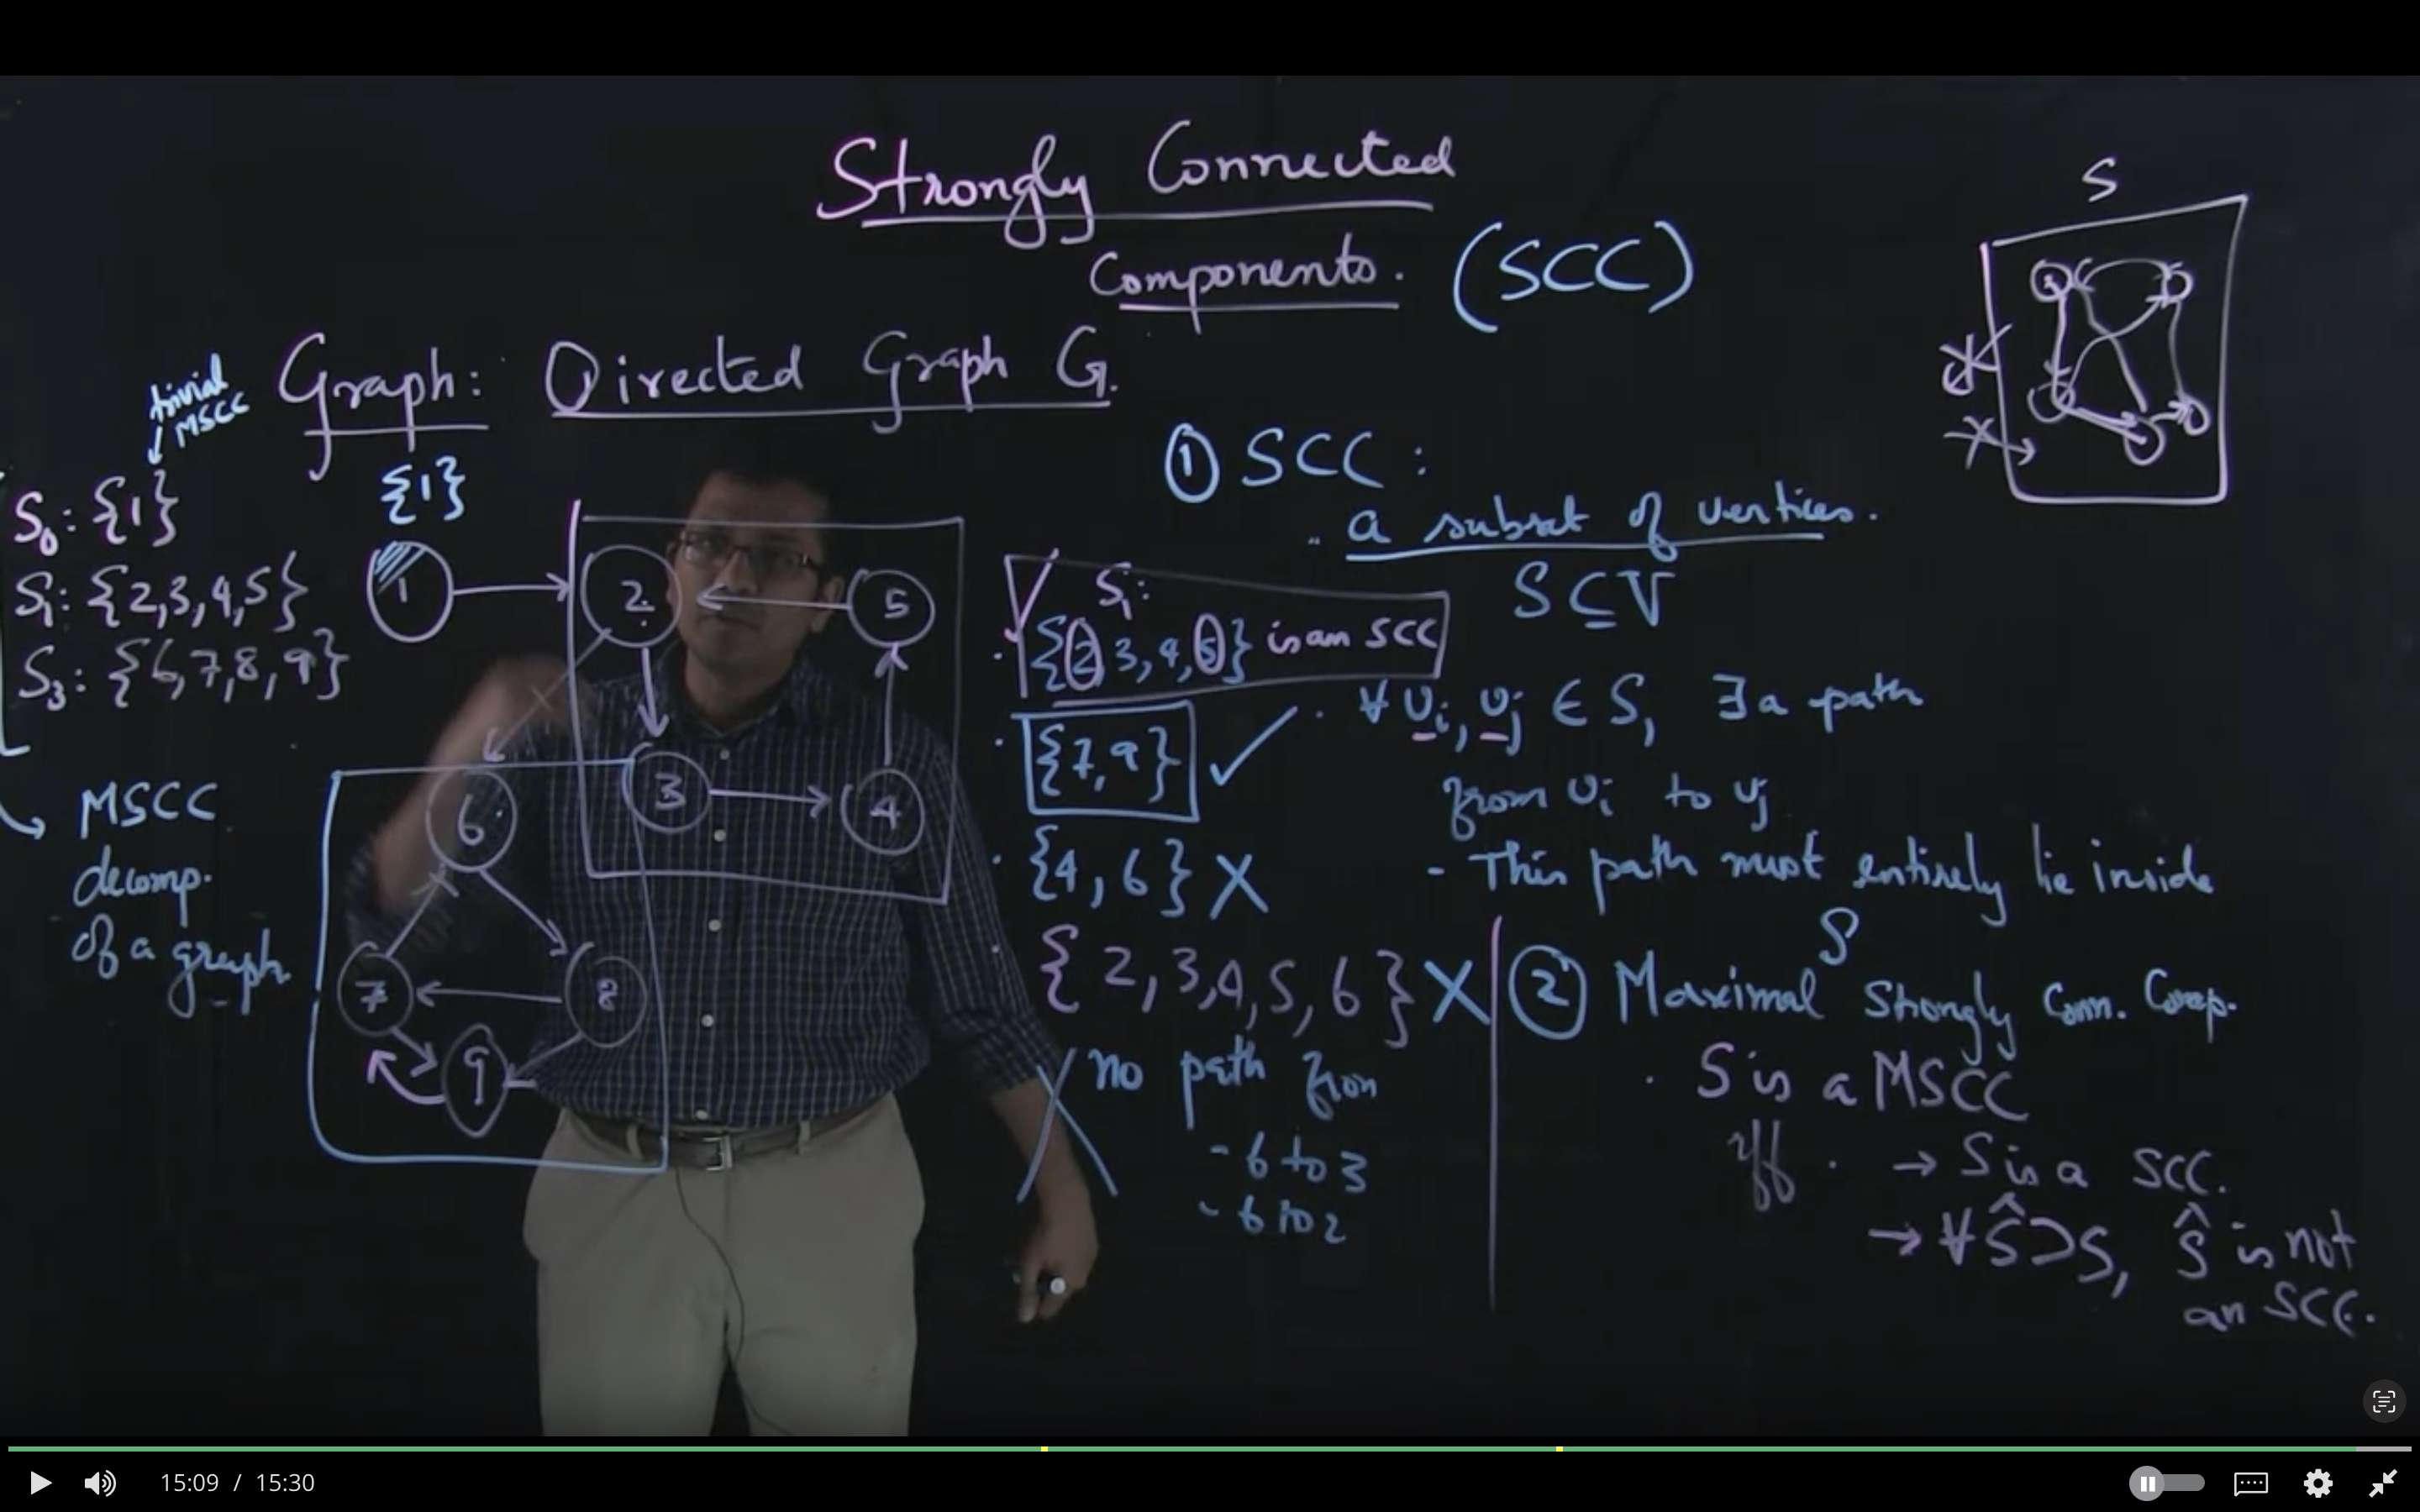 Strongly Connected
Components. (SCC)
S
Graph: Directed Graph G.
trivial
MSCC
S₀: {1}
S₁: {2,3,4,5}
S₃: {6,7,8,9}
MSCC
decomp.
of a graph
{1}
1
2
5
3
4
6
7
8
9
① SCC:
a subset of vertices.
S ⊆ V
S₁:
{2,3,4,5} is an SCC
{7,9} ✓
{4,6} X
{2,3,4,5,6} X
no path from
- 6 to 3
- 6 to 2
∀ vᵢ, vⱼ ∈ S, ∃ a path
from vᵢ to vⱼ
- This path must entirely lie inside
S
② Maximal Strongly Conn. Comp.
S is a MSCC
iff → S is a SCC.
→ ∀ Ŝ ⊃ S, Ŝ is not
an SCC.
15:09 / 15:30